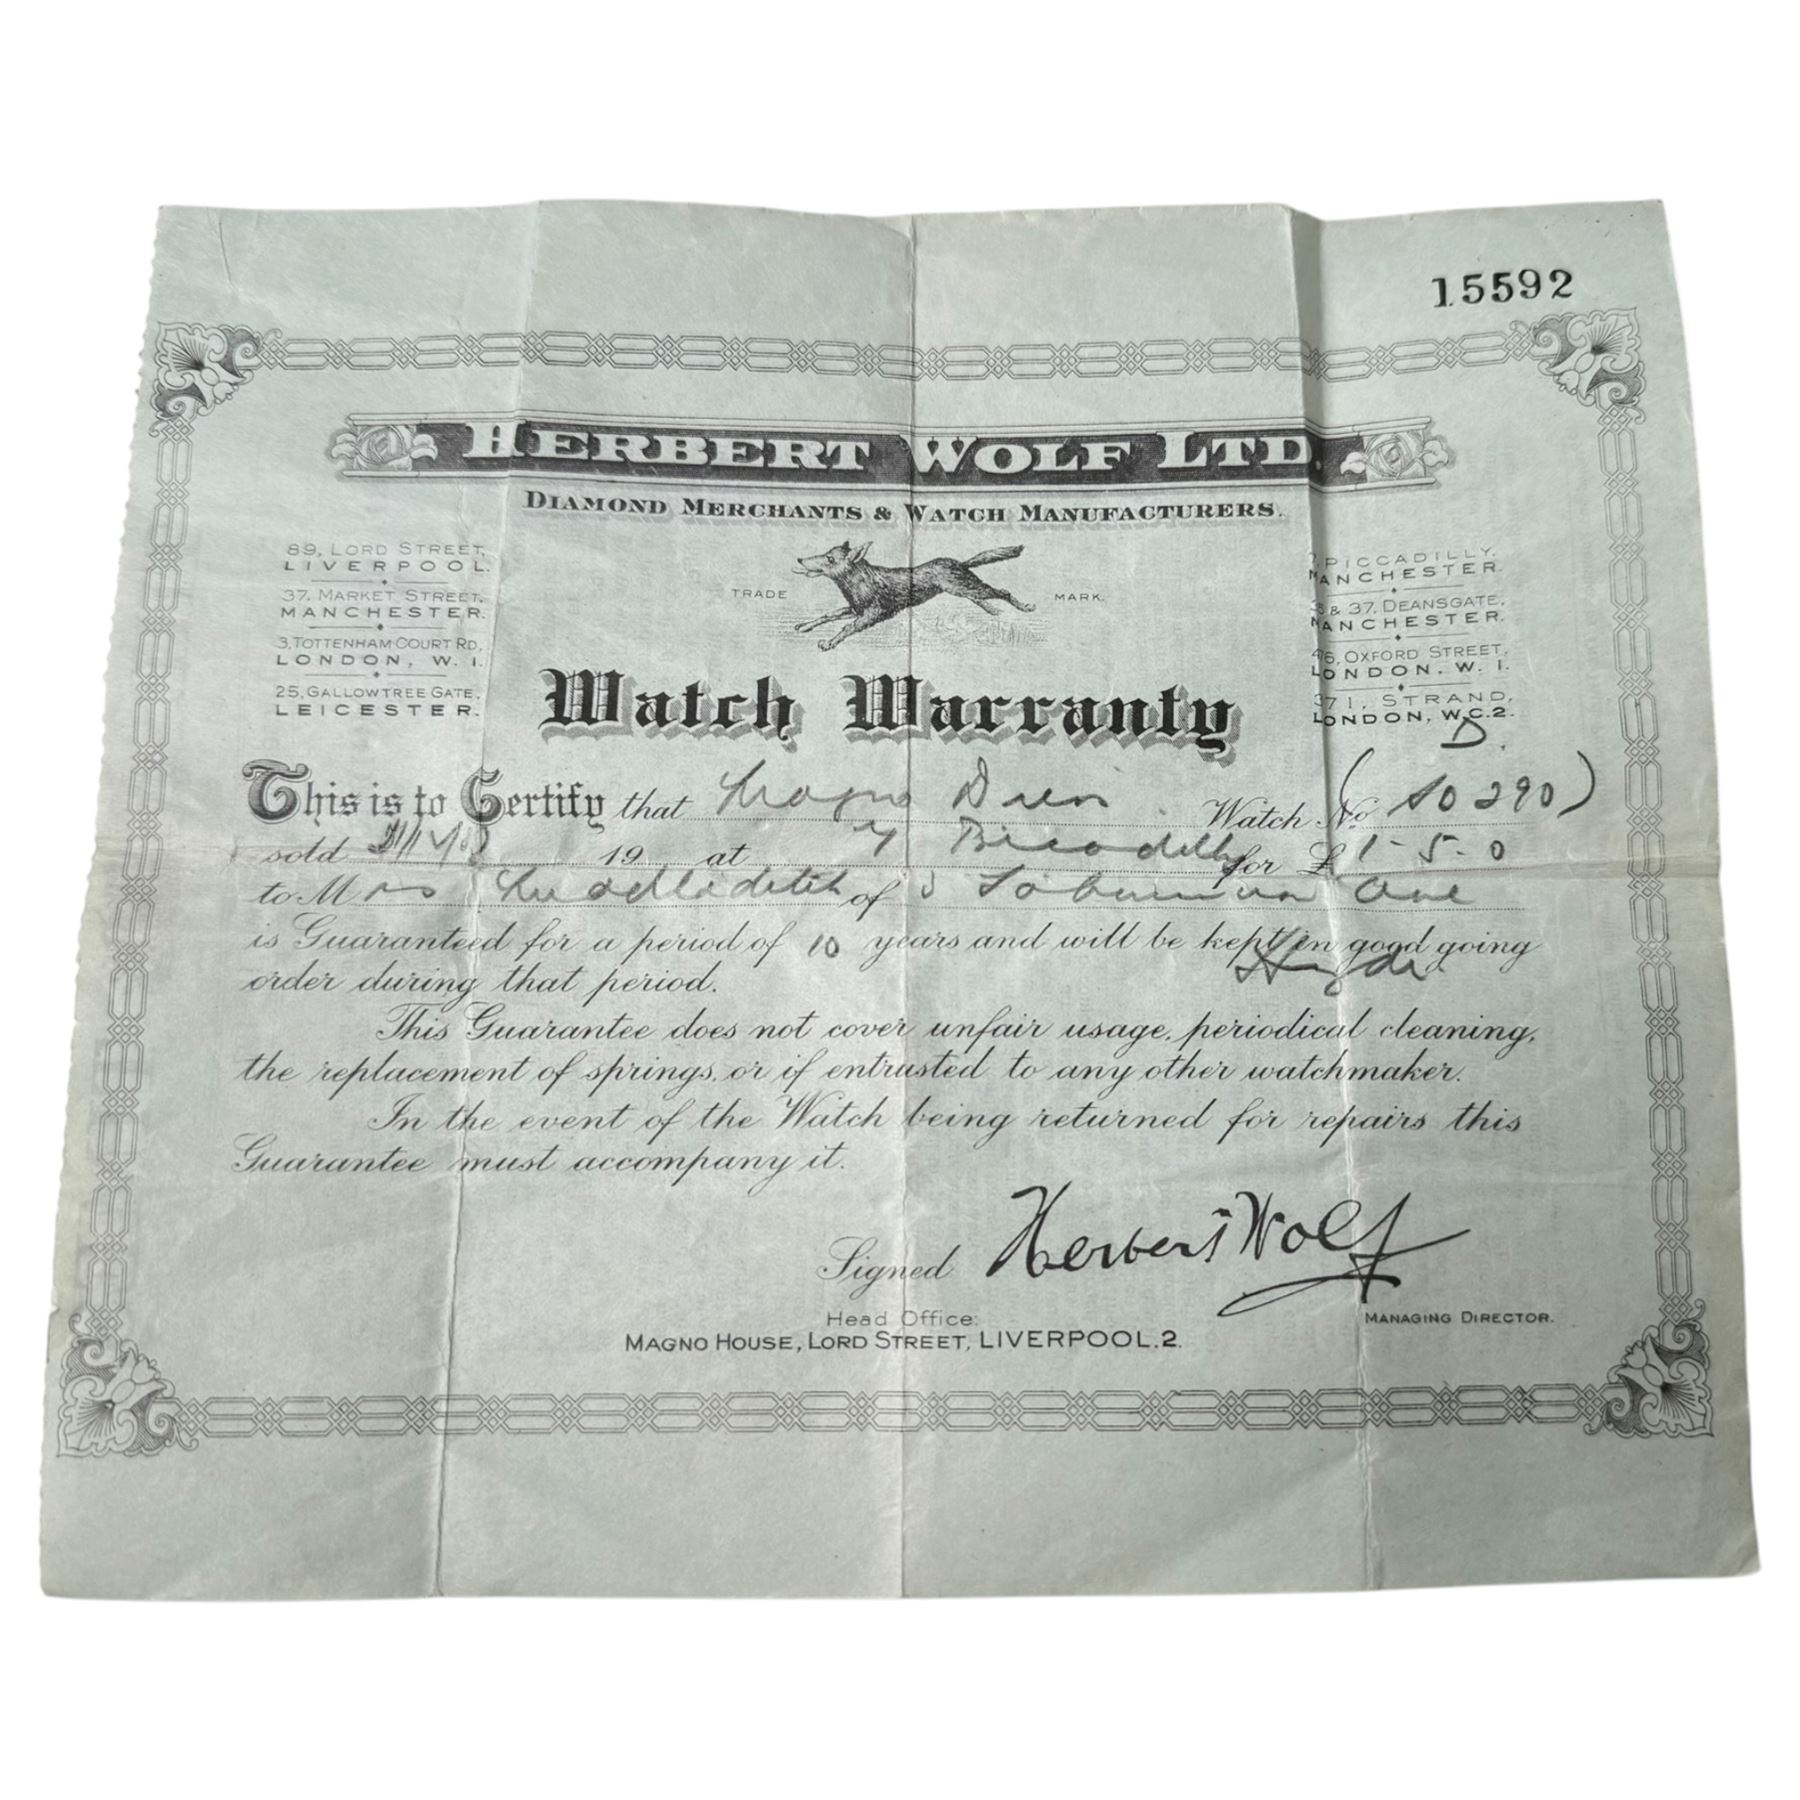 15592
HERBERT WOLF LTD.
DIAMOND MERCHANTS & WATCH MANUFACTURERS.
89, LORD STREET,
LIVERPOOL.
37, MARKET STREET,
MANCHESTER.
3, TOTTENHAM COURT RD,
LONDON, W. 1.
25, GALLOWTREE GATE,
LEICESTER.
TRADE MARK.
PICCADILLY,
MANCHESTER.
& 37, DEANSGATE,
MANCHESTER.
OXFORD STREET,
LONDON. W. 1.
371, STRAND,
LONDON, W.C.2.
Watch Warranty
D.
This is to Certify that Magno Watch No (10290)
sold 19 at 7 Piccadilly for £ 1-5-0
to Mrs of Ave
is Guaranteed for a period of 10 years and will be kept in good going
Hyde
order during that period.
This Guarantee does not cover unfair usage, periodical cleaning,
the replacement of springs, or if entrusted to any other watchmaker.
In the event of the Watch being returned for repairs this
Guarantee must accompany it.
Signed Herbert Wolf
MANAGING DIRECTOR.
Head Office:
MAGNO HOUSE, LORD STREET, LIVERPOOL.2.